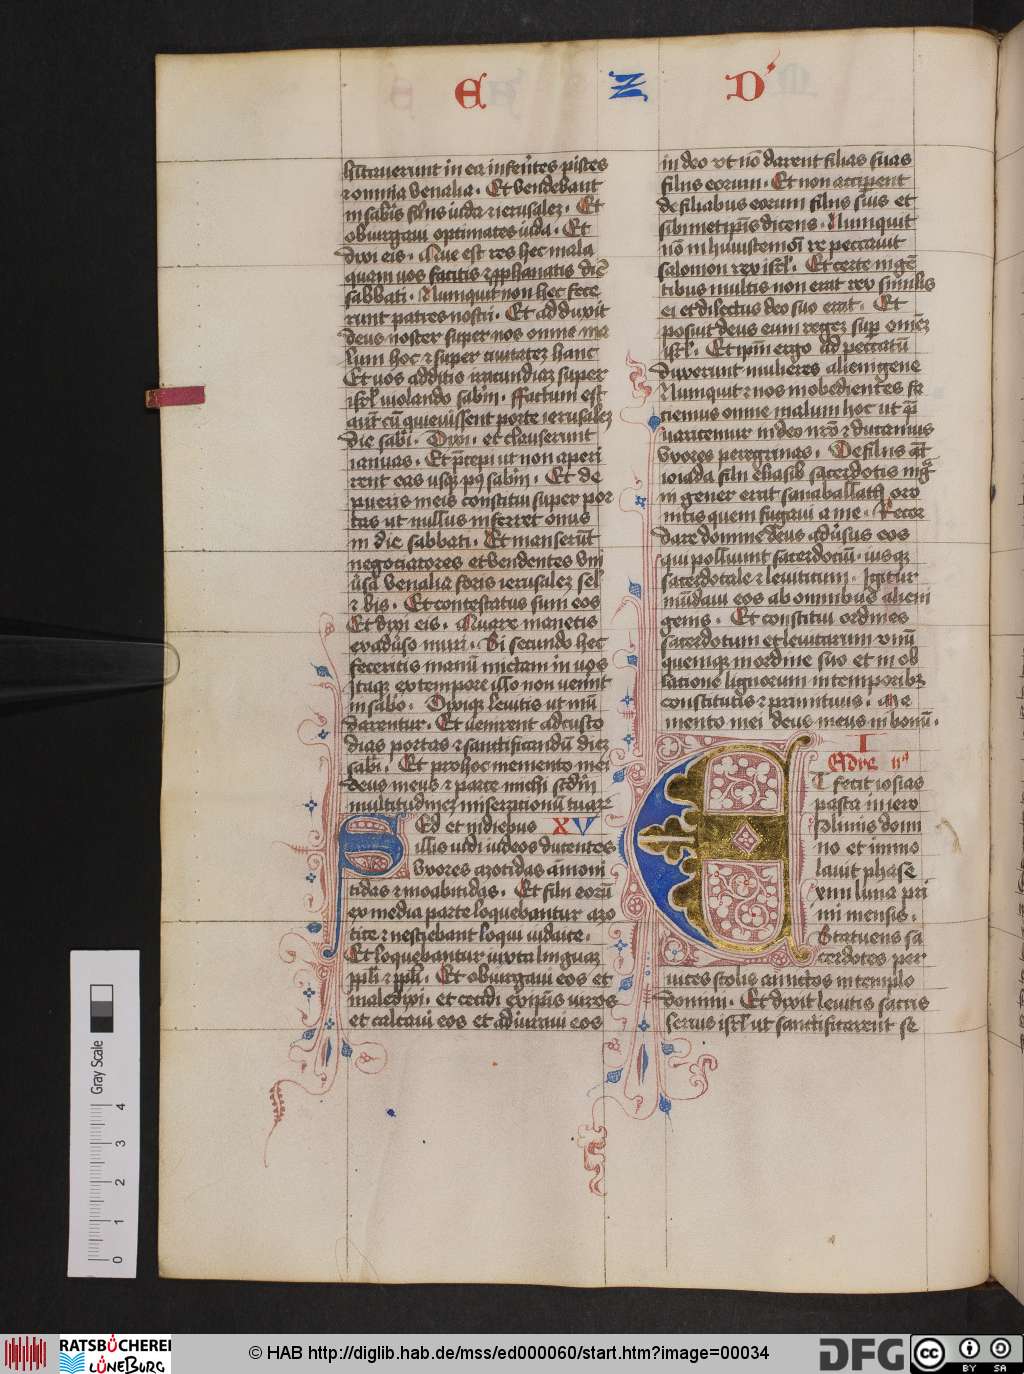 E Z D
h̅itauerunt in ea inferentes pisces
⁊ omnia venalia . Et vendebant
in sab̅is filiis iuda ⁊ ierusalez . Et
obiurgaui optimates iuda . Et
dixi eis . Que est res hec mala
quam uos facitis ⁊ p̱phanatis die̅
sabbati . Numquit non hec fece
runt patres nostri . Et adduxit
deus noster super nos omne ma
lum hoc ⁊ super ciuitatez hanc
Et uos additis iracundiaz super
isrl̅ uiolando sab̅m . Ffactum est
aut̅ cu̅ quieuissent porte ierusalez
die sab̅i . Dixi . et clauserunt
ianuas . Et p̅cepi ut non aperi
rent eas usqz pꝰ sab̅m . Et de
pueris meis constitui super por
tas ut nullus inferret onus
in die sabbati . Et manseru̅t
negociatores et vendentes vni
u̅sa venalia foris ierusalez sel̅
⁊ bis . Et contestatus sum eos
Et dixi eis . Quare manetis
ex adu̅so muri . Si secundo hec
feceritis manu̅ mictam in uos
Itaqz ex tempore illo non uen̅nt
in sab̅o . Dixiqz leuitis ut mu̅
darentur . Et uenirent ad custo
dias portas ⁊ sanctificandu̅ diez
sab̅i . Et pro hoc memento mei
deus meus ⁊ parce michi scd̅m
multitudinez miseracionu̅ tuarꝝ
Sed et in diebus XV
illis uidi iudeos ducentes
vxores azotidas a̅moni
tidas ⁊ moabitidas . Et filii eoru̅
ex media parte loquebantur azo
tice ⁊ nesciebant loqui iudaice .
Et loquebantur iuxta linguaz
ppl̅i ⁊ ppl̅i . Et obiurgaui eos et
maledixi . et cecidi ex ip̅is uiros
et calcaui eos et adiuraui eos
in deo vt no̅ darent filias suas
filiis eorum . Et non acciperent
de filiabus eorum filiis suis et
sibimetip̅is dicens . Numquit
no̅ in huiuscemo̅i re peccauit
salomon rex isrl̅ . Et certe in ge̅
tibus multis non erat rex similis
ei et dilectus deo suo erat . Et
posuit deus eum regez sup̱ om̅ez
isrl̅ . Et ip̅m ergo ad peccatu̅
duxerunt mulieres alienigene
Numquit ⁊ nos inobedientes fa
ciemus omne malum hoc ut p̱̅
uaricemur in deo nr̅o ⁊ ducamus
vxores peregrinas . De filiis aut̅
ioiada filii eliasib sacerdotis mag̅
ni gener erat sanaballath oro
nitis quem fugaui a me . Recor
dare domine deus adu̅sus eos
qui polluunt sacerdociu̅ . iusqz
sacerdotale ⁊ leuiticum . Igitur
mu̅daui eos ab omnibus alieni
genis . Et constitui ordines
sacerdotum et leuitarum vnu̅
quemqz in ordine suo et in ob
latione lignorum in temporibz
constitutis ⁊ primitiuis . Me
mento mei deus meus in bonu̅ .
I
Esdre iiꝰ
Et fecit iosias
pasca in iero
solimis domi
no et immo
lauit phase
xiiii luna pri
mi mensis .
Statuens sa
cerdotes per
uices stolis amictos in templo
domini . Et dixit leuitis sacris
seruis isrl̅ ut sanctificarent se
Gray Scale
0 1 2 3 4
RATSBÜCHEREI
LÜNEBURG
© HAB http://diglib.hab.de/mss/ed000060/start.htm?image=00034
DFG
CC BY SA